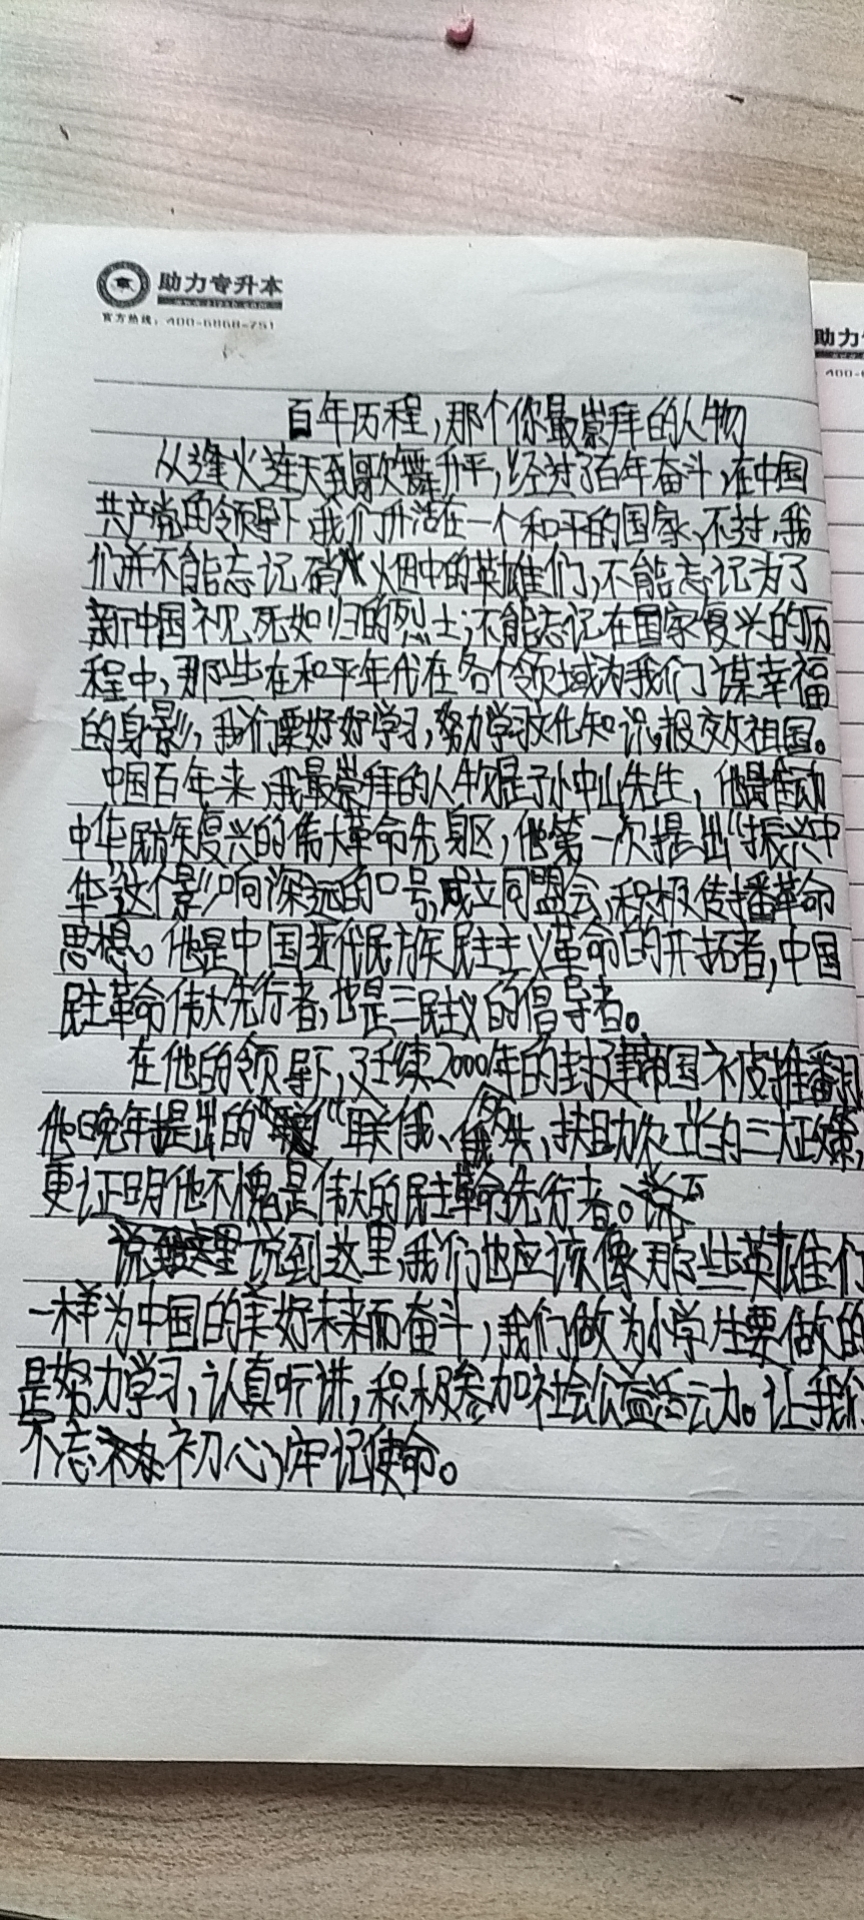 助力专升本
官方热线：400-6868-751
助力
400-6
百年历程，那个你最崇拜的人物
从逢火连天到歌舞升平，经过了百年奋斗，在中国
共产党的领导下，我们生活在一个和平的国家、不过，我
们并不能忘记硝火烟中的英雄们，不能忘记为了
新中国视死如归的烈士；不能忘记在国家复兴的历
程中，那些在和平年代在各个领域为我们谋幸福
的身影，我们要好好学习，努力学习文化知识，报效祖国。
中国百年来，我最崇拜的人物是孙中山先生，他是推动
中华民族复兴的伟大革命先驱，他第一次提出“振兴中
华”这个影响深远的口号，成立同盟会，积极传播革命
思想。他是中国近代民族民主主义革命的开拓者，中国
民主革命伟大先行者，也是三民主义的倡导者。
在他的领导下，延续2000年的封建帝国被推翻
他晚年提出的“联俄、联共、扶助农工”的三大政策，
更证明他不愧是伟大的民主革命先行者。
说到这里，我们也应该像那些英雄们
一样为中国的美好未来而奋斗，我们做为小学生要做的
是努力学习，认真听讲，积极参加社会公益活动。让我们
不忘初心，牢记使命。